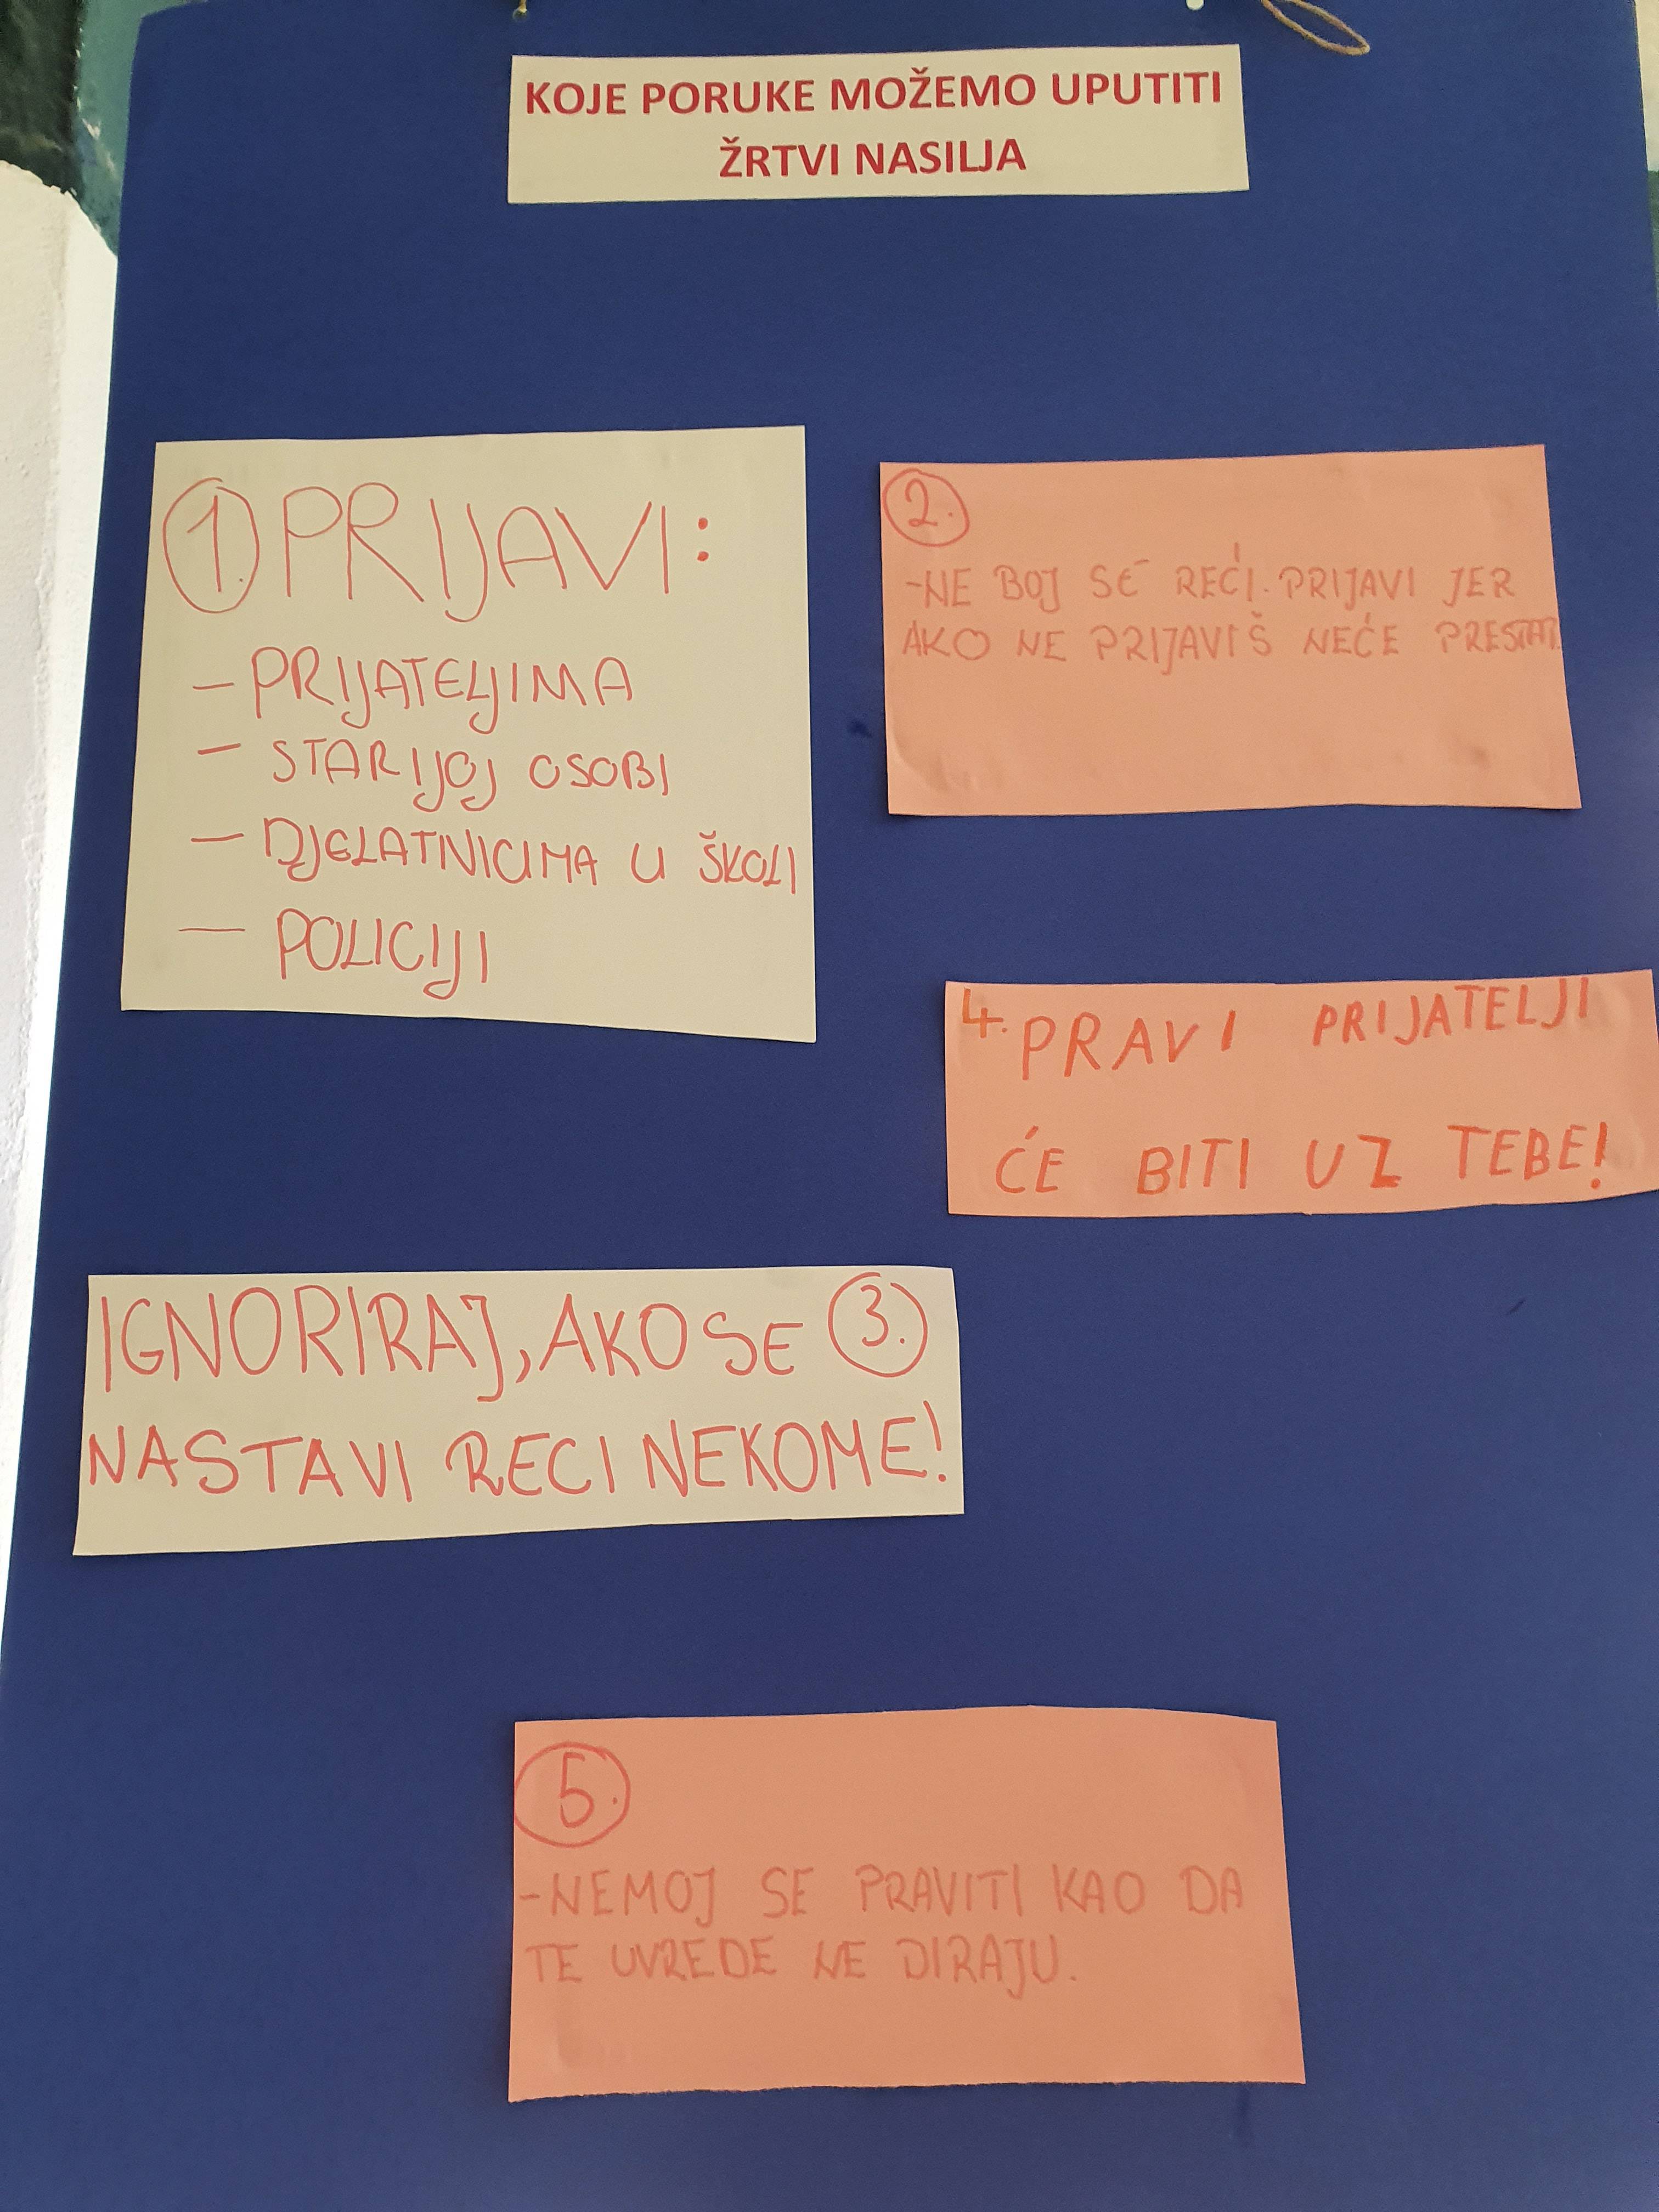 KOJE PORUKE MOŽEMO UPUTITI
ŽRTVI NASILJA
1. PRIJAVI:
- PRIJATELJIMA
- STARIJOJ OSOBI
- DJELATNICIMA U ŠKOLI
- POLICIJI
2.
-NE BOJ SE REĆI. PRIJAVI JER
AKO NE PRIJAVIŠ NEĆE PRESTATI.
IGNORIRAJ, AKO SE 3.
NASTAVI RECI NEKOME!
4. PRAVI PRIJATELJI
ĆE BITI UZ TEBE!
5.
-NEMOJ SE PRAVITI KAO DA
TE UVREDE NE DIRAJU.